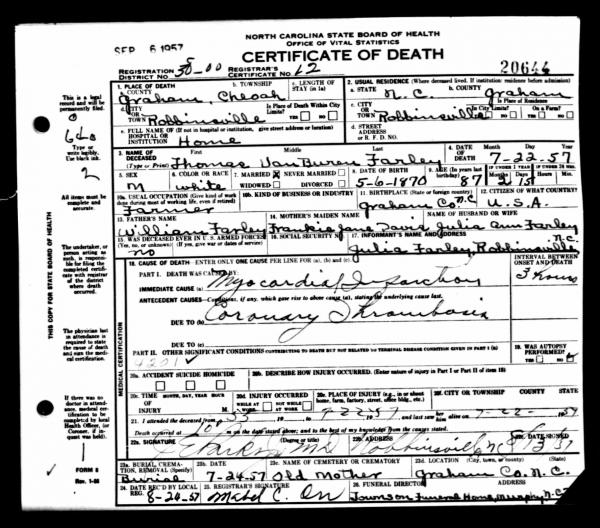 NORTH CAROLINA STATE BOARD OF HEALTH
OFFICE OF VITAL STATISTICS
SEP 6 1957
CERTIFICATE OF DEATH
20646
REGISTRATION DISTRICT NO. 38-00 REGISTRAR'S CERTIFICATE NO. 62
1. PLACE OF DEATH
a. COUNTY Graham b. TOWNSHIP Cheoah c. LENGTH OF STAY (in 1a)
2. USUAL RESIDENCE (Where deceased lived. If institution: residence before admission)
a. STATE N.C. b. COUNTY Graham
d. CITY OR TOWN Robbinsville Is Place of Death Within City Limits? YES NO
c. CITY OR TOWN Robbinsville Is Place of Residence In City Limits? YES NO On a Farm? YES NO
e. FULL NAME OF HOSPITAL OR INSTITUTION (If not in hospital or institution, give street address or location) Home
d. STREET ADDRESS OR R. F. D. NO.
3. NAME OF DECEASED (Type or Print) First Thomas Middle Van Buren Last Farley
4. DATE OF DEATH Month Day Year 7-22-57
5. SEX M
6. COLOR OR RACE White
7. MARRIED NEVER MARRIED WIDOWED DIVORCED
8. DATE OF BIRTH 5-6-1870
9. AGE (In years last birthday) 87 IF UNDER 1 YEAR Months Days 15 IF UNDER 24 HRS. Hours Min.
10a. USUAL OCCUPATION (Give kind of work done during most of working life, even if retired) Farmer
10b. KIND OF BUSINESS OR INDUSTRY
11. BIRTHPLACE (State or foreign country) Graham Co N.C.
12. CITIZEN OF WHAT COUNTRY? U.S.A.
13. FATHER'S NAME William Farley
14. MOTHER'S MAIDEN NAME Frankie Jane Davis
NAME OF HUSBAND OR WIFE Julia Ann Farley
15. WAS DECEASED EVER IN U. S. ARMED FORCES? (Yes, no, or unknown) (If yes, give war or dates of service) no
16. SOCIAL SECURITY NO.
17. INFORMANT'S NAME AND ADDRESS Julia Farley, Robbinsville N.C.
18. CAUSE OF DEATH ENTER ONLY ONE CAUSE PER LINE FOR (a), (b) and (c)
INTERVAL BETWEEN ONSET AND DEATH
PART I. DEATH WAS CAUSED BY:
IMMEDIATE CAUSE (a) Myocardial Infarction 3 hours
ANTECEDENT CAUSES Conditions, if any, which gave rise to above cause (a), stating the underlying cause last.
DUE TO (b) Coronary Thrombosis
DUE TO (c)
PART II. OTHER SIGNIFICANT CONDITIONS CONTRIBUTING TO DEATH BUT NOT RELATED TO TERMINAL DISEASE CONDITION GIVEN IN PART I (a)
4201
19. WAS AUTOPSY PERFORMED? YES NO
20a. ACCIDENT SUICIDE HOMICIDE
20b. DESCRIBE HOW INJURY OCCURRED. (Enter nature of injury in Part I or Part II of item 18)
20c. TIME OF INJURY HOUR MONTH, DAY, YEAR
20d. INJURY OCCURRED WHILE AT WORK NOT WHILE AT WORK
20e. PLACE OF INJURY (e.g., in or about home, farm, factory, street, office bldg., etc.)
20f. CITY OR TOWNSHIP COUNTY STATE
21. I attended the deceased from 7-22 1957 and last saw alive on 7-22 1957
Death occurred at m on the date stated above; and to the best of my knowledge from the causes stated.
22a. SIGNATURE (Degree or title) MD
22b. ADDRESS Robbinsville NC
22c. DATE SIGNED
23a. BURIAL, CREMATION, REMOVAL (Specify) Burial
23b. DATE 7-24-57
23c. NAME OF CEMETERY OR CREMATORY Old Mother
23d. LOCATION (City, town, or county) (State) Graham Co. N.C.
24. DATE REC'D BY LOCAL REG. 8-24-57
25. REGISTRAR'S SIGNATURE Mabel C. Orr
26. FUNERAL DIRECTOR ADDRESS Townson Funeral Home, Murphy N.C.
This is a legal record and will be permanently filed.
640
Type or write legibly. Use black ink.
2
All items must be complete and accurate.
The undertaker, or person acting as such, is responsible for filing the completed certificate with registrar of the district where death occurred.
The physician last in attendance is required to state the cause of death and sign the medical certification.
If there was no doctor in attendance, medical certification to be completed by local Health Officer, (or Coroner, if inquest was held).
1
FORM 8
Rev. 1-56
THIS COPY FOR STATE BOARD OF HEALTH
MEDICAL CERTIFICATION